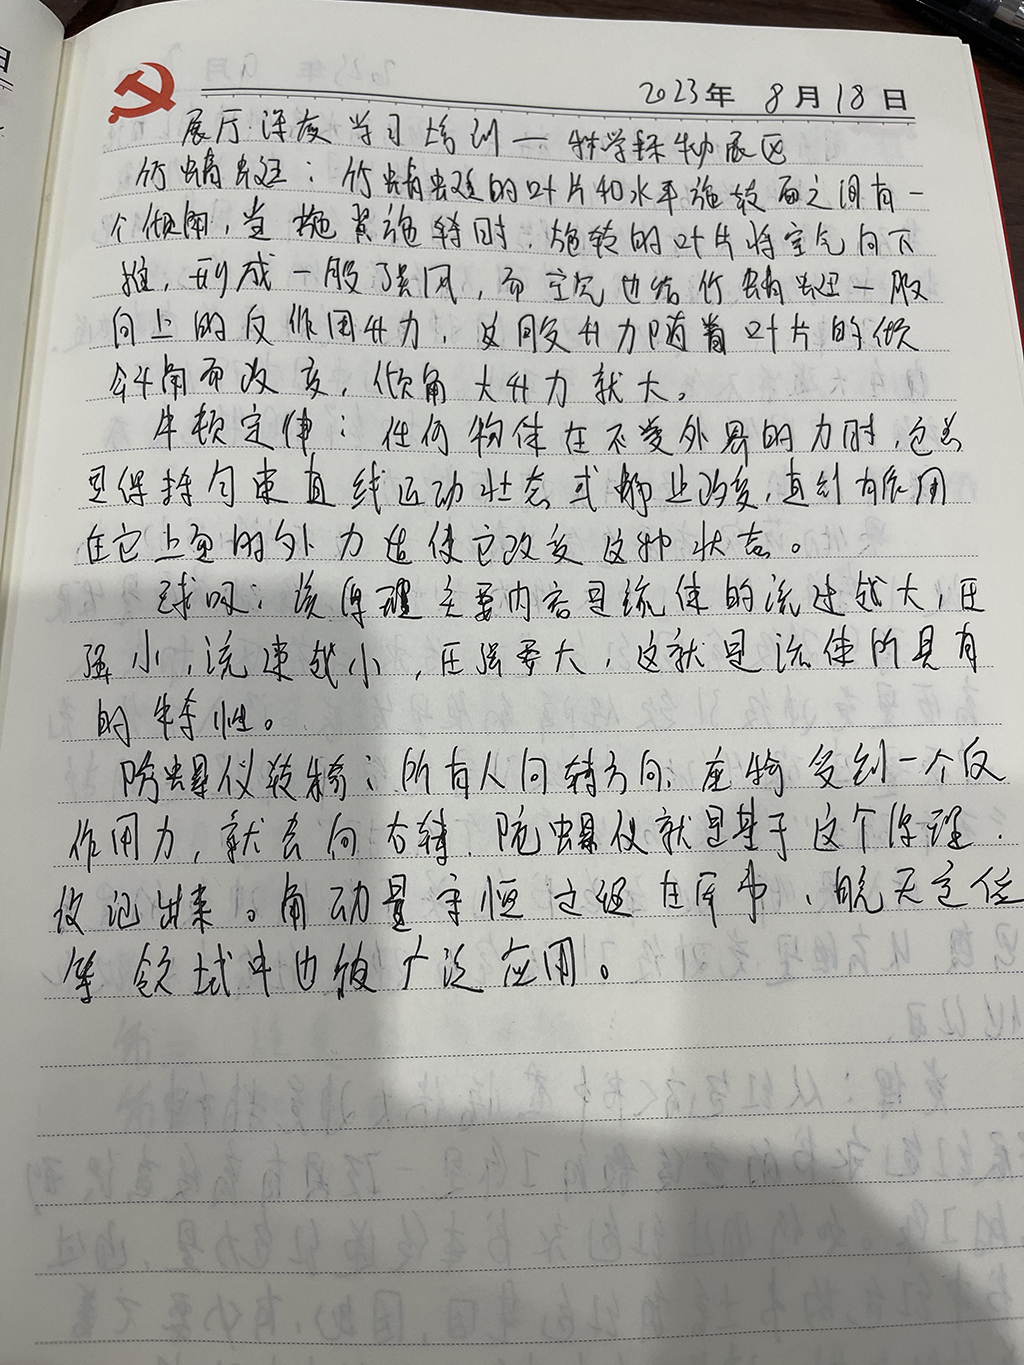 2023年 8月18日
展厅深度学习培训一科学探物展区
竹蜻蜓：竹蜻蜓的叶片和水平旋转面之间有一
个倾角，当 旋转时，旋转的叶片将空气向下
推，形成一股强风，而空气也给竹蜻蜓一股
向上的反作用升力，这股升力随着叶片的倾
斜角而改变，倾角大升力就大。
牛顿定律：任何物体在不受外界的力时，总
是保持匀速直线运动状态或静止改变，直到有作用
在它上面的外力迫使它改变这种状态。
球吸：该原理主要内容是流体的流速越大，压
强小，流速越小，压强要大，这就是流体所具有
的特性。
陀螺仪转椅：所有人向转方向，座椅受到一个反
作用力，就会向右转，陀螺仪就是基于这个原理，
设记出来。角动量守恒 在军事、航天定位
等领域中也被广泛应用。